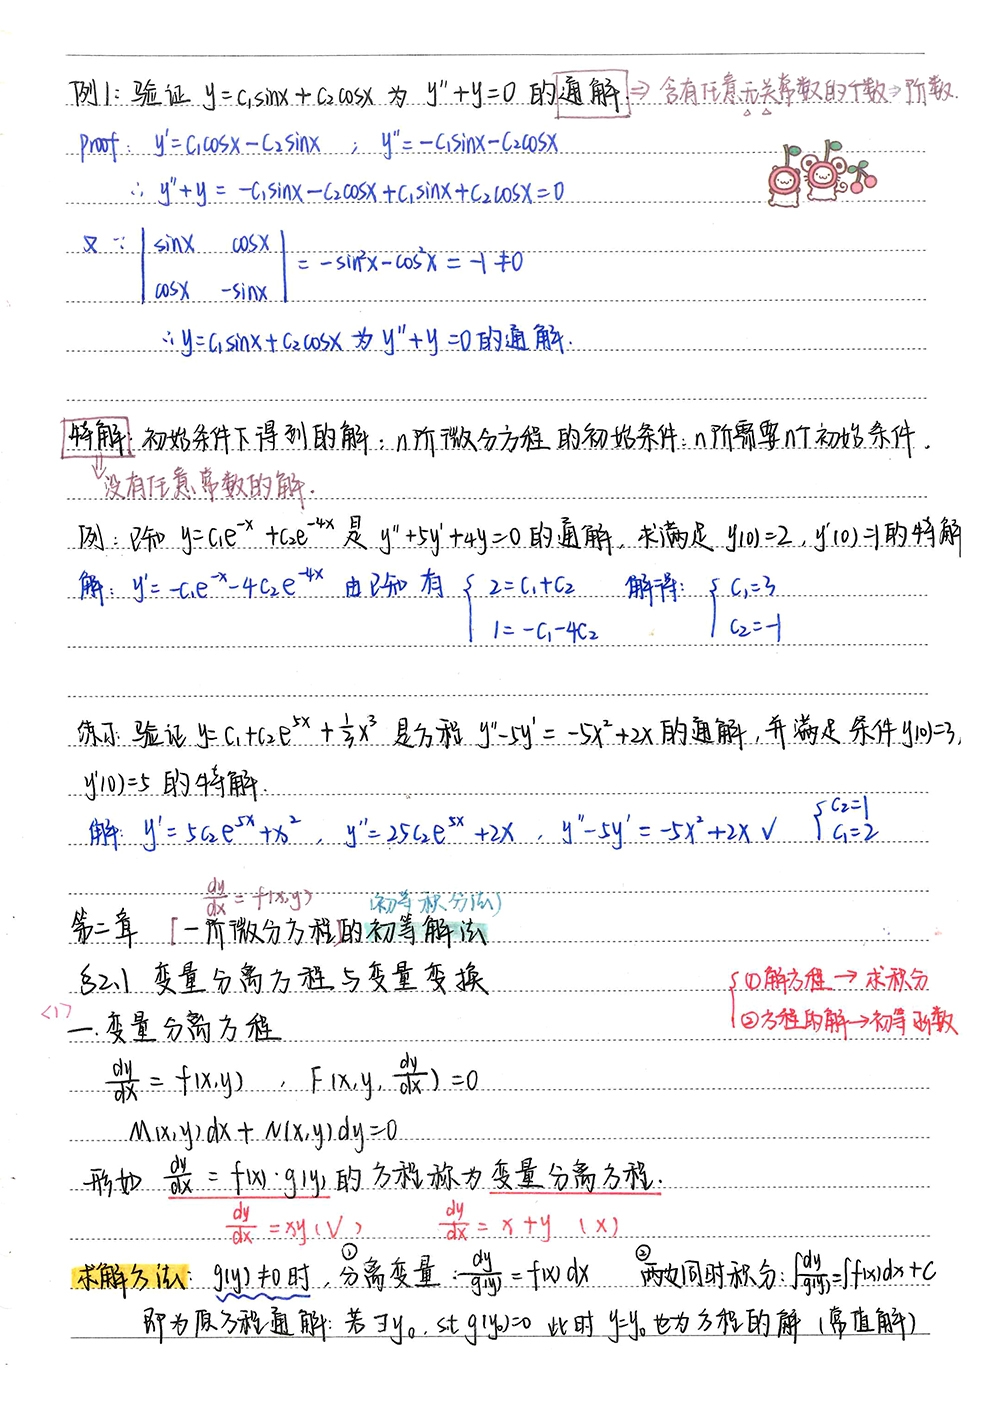 例1: 验证 y=c₁sinx+c₂cosx 为 y''+y=0 的通解. ⇒ 含有任意无关常数的个数→阶数.
proof: y'=c₁cosx-c₂sinx ; y''=-c₁sinx-c₂cosx
∴ y''+y = -c₁sinx-c₂cosx+c₁sinx+c₂cosx=0
又∵ | sinx cosx |
| cosx -sinx | = -sin²x-cos²x = -1≠0
∴ y=c₁sinx+c₂cosx 为 y''+y=0 的通解.
特解: 初始条件下得到的解; n阶微分方程 的初始条件: n阶需要n个初始条件.
⇓ 没有任意常数的解.
例: 已知 y=c₁e^{-x}+c₂e^{-4x} 是 y''+5y'+4y=0 的通解, 求满足 y(0)=2, y'(0)=1 的特解
解: y'=-c₁e^{-x}-4c₂e^{-4x} 由已知 有 { 2=c₁+c₂ 解得: { c₁=3
1=-c₁-4c₂ c₂=-1
练习: 验证 y=c₁+c₂e^{5x}+⅓x³ 是方程 y''-5y'=-5x²+2x 的通解, 并满足 条件y(0)=3,
y'(0)=5 的特解.
解: y'=5c₂e^{5x}+x², y''=25c₂e^{5x}+2x, y''-5y'=-5x²+2x √ { c₂=1
c₁=2
dy/dx = f(x,y) (初等积分法)
第二章 [一阶微分方程]的初等解法
§2.1 变量分离方程与变量变换
{ ①解方程 → 求积分
②方程的解→初等函数
<1> 一. 变量分离方程
dy/dx = f(x,y) , F(x,y,dy/dx)=0
M(x,y)dx+N(x,y)dy=0
形如 dy/dx = f(x)·g(y) 的方程称为变量分离方程.
dy/dx = xy (√) dy/dx = x+y (×)
求解方法: g(y)≠0时, ①分离变量: dy/g(y) = f(x)dx ②两边同时积分: ∫dy/g(y)=∫f(x)dx+C
即为原方程通解: 若∃y₀, st g(y₀)=0 此时 y=y₀也为方程的解 (常值解)